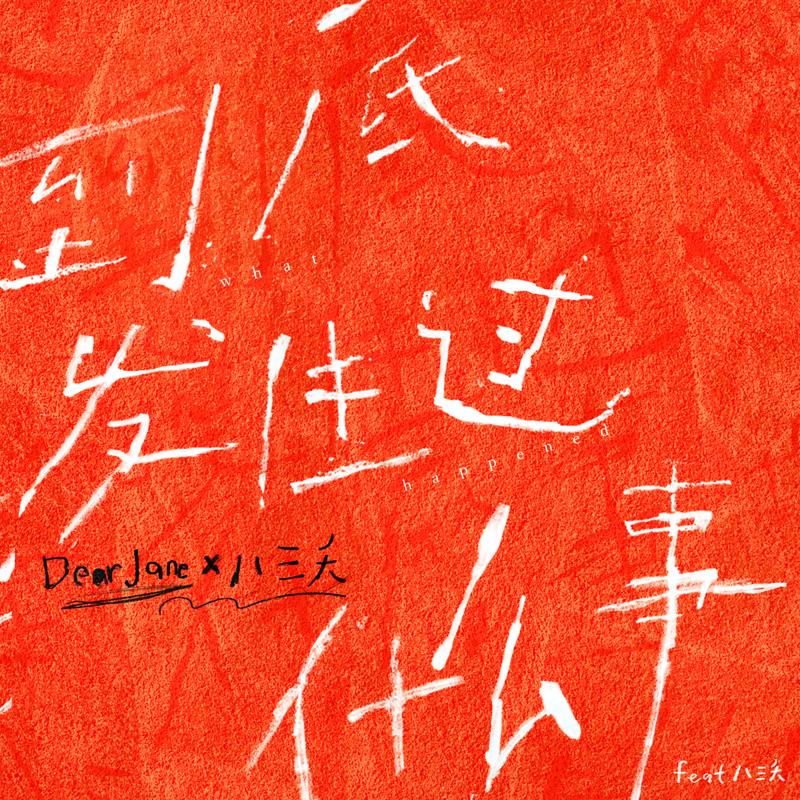 到底
what
发生过
happened
Dear Jane x 八三夭
什么事
feat 八三夭